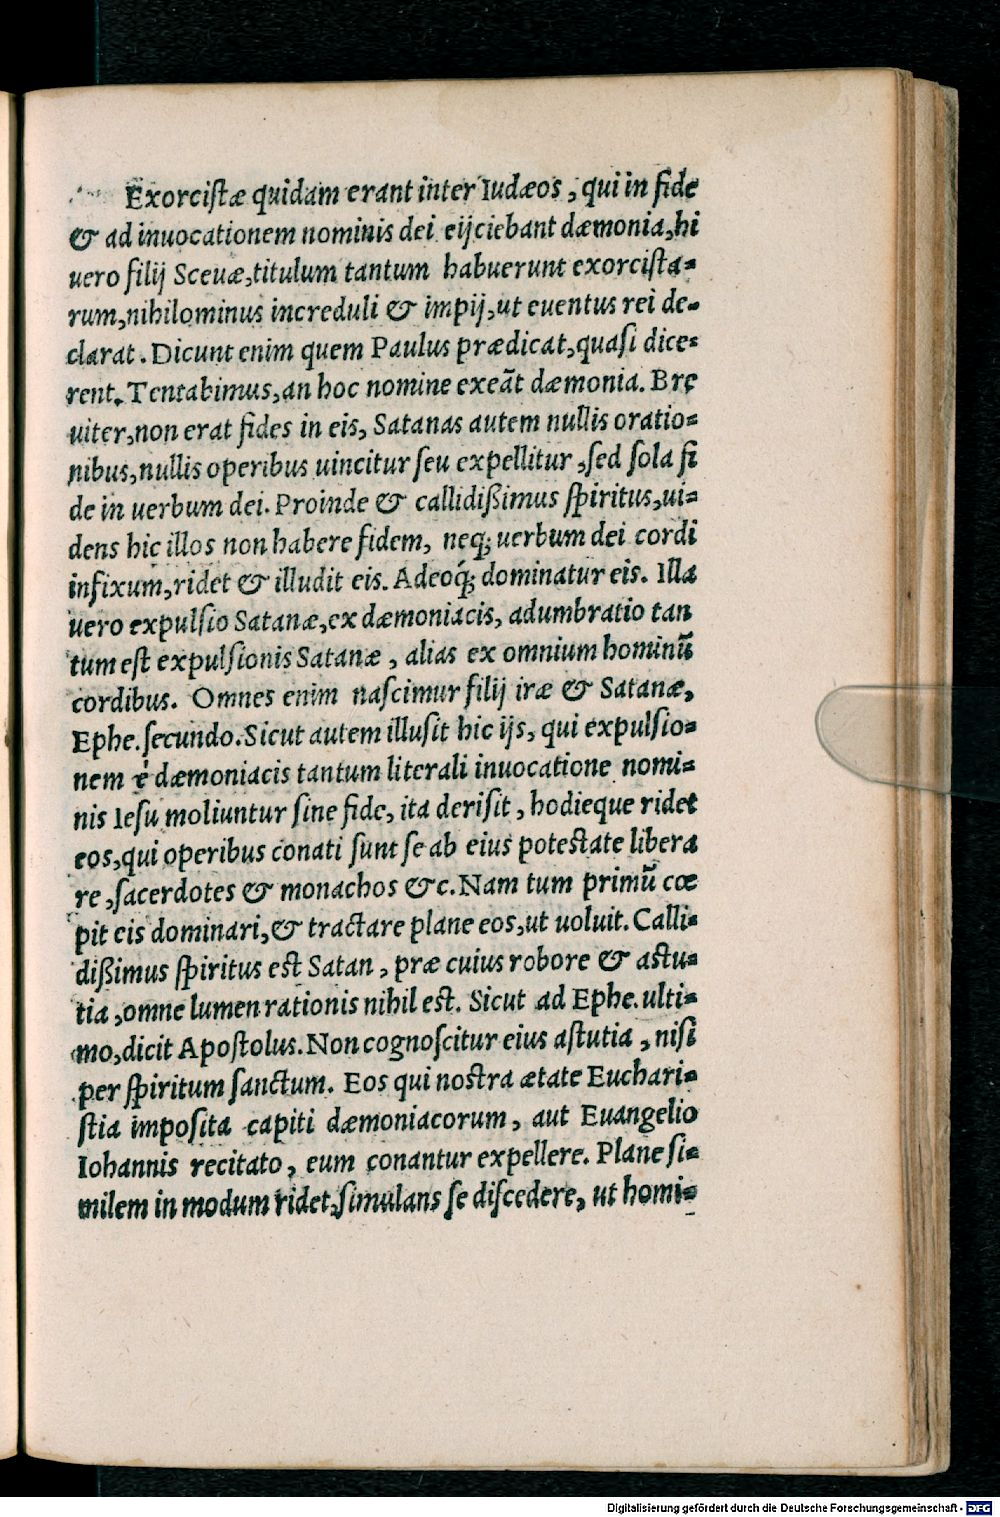 Exorcistæ quidam erant inter Iudæos, qui in fide
& ad inuocationem nominis dei eijciebant dæmonia, hi
uero filij Sceuæ, titulum tantum habuerunt exorcista-
rum, nihilominus increduli & impij, ut euentus rei de-
clarat. Dicunt enim quem Paulus prædicat, quasi dice-
rent. Tentabimus, an hoc nomine exeãt dæmonia. Bre
uiter, non erat fides in eis, Satanas autem nullis oratio-
nibus, nullis operibus uincitur seu expellitur, sed sola fi
de in uerbum dei. Proinde & callidißimus spiritus, ui-
dens hic illos non habere fidem, neq; uerbum dei cordi
infixum, ridet & illudit eis. Adeoq́; dominatur eis. Illa
uero expulsio Satanæ, ex dæmoniacis, adumbratio tan
tum est expulsionis Satanæ, alias ex omnium hominũ
cordibus. Omnes enim nascimur filij iræ & Satanæ,
Ephe. secundo. Sicut autem illusit hic ijs, qui expulsio-
nem è dæmoniacis tantum literali inuocatione nomi-
nis Iesu moliuntur sine fide, ita derisit, hodieque ridet
eos, qui operibus conati sunt se ab eius potestate libera
re, sacerdotes & monachos &c. Nam tum primũ cœ
pit eis dominari, & tractare plane eos, ut uoluit. Calli-
dißimus spiritus est Satan, præ cuius robore & astu-
tia, omne lumen rationis nihil est. Sicut ad Ephe. ulti-
mo, dicit Apostolus. Non cognoscitur eius astutia, nisi
per spiritum sanctum. Eos qui nostra ætate Euchari-
stia imposita capiti dæmoniacorum, aut Euangelio
Iohannis recitato, eum conantur expellere. Plane si-
milem in modum ridet, simulans se discedere, ut homi-
Digitalisierung gefördert durch die Deutsche Forschungsgemeinschaft - DFG